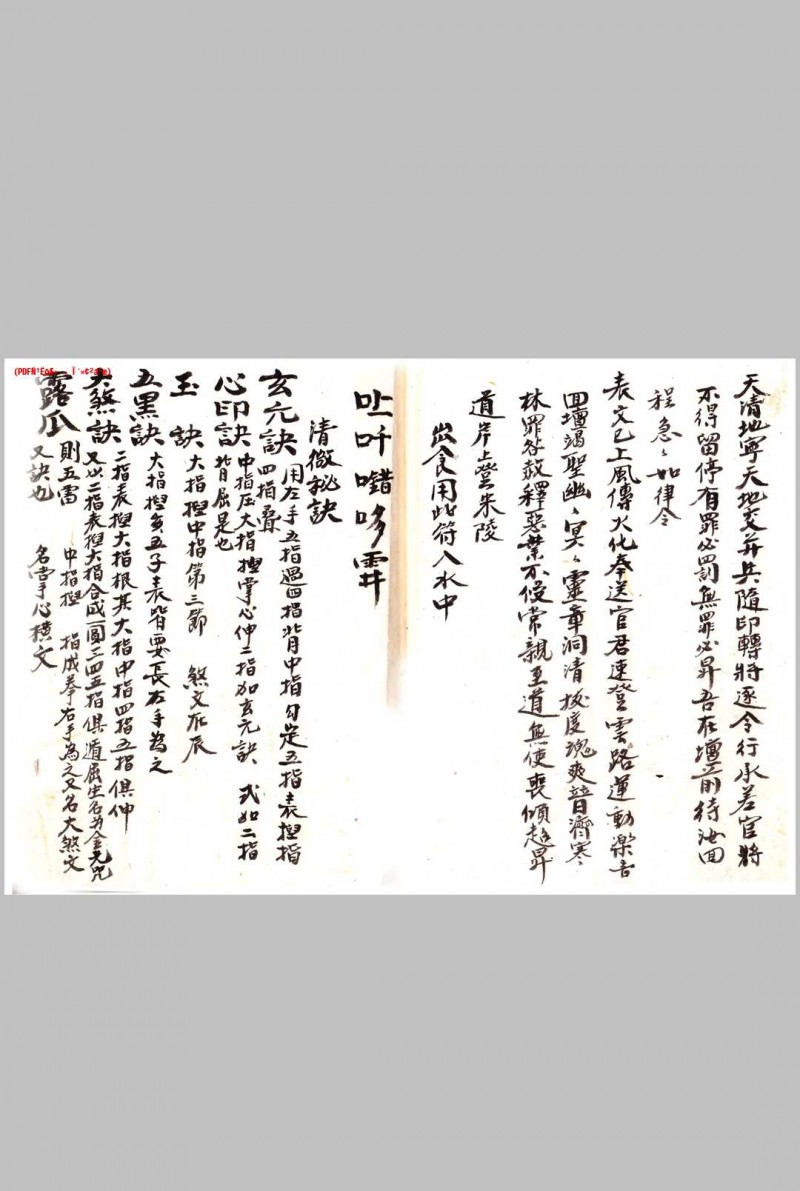 天清地寧天地交并兵隨印轉將逐令行承差官將
不得留停有罪必罰無罪必昇吾在壇前待汝回
程急〻如律令
表文已上風傳火化奉送官君速登雲路運動樂音
回壇謁聖幽〻冥〻靈章洞清拔度魂爽普濟寒
林罪咎赦釋惡業不侵常親至道無使喪傾超昇
道岸上登朱陵
出食用此符入水中
吐吽𡃤哆霹
清微秘訣
玄元訣 用左手五指過四指背中指勾定五指表捏指
四指彙
心印訣 中指压大指捏掌心伸二指加玄元訣 式如二指
背屈是也
玉訣 大指捏中指第三節 煞文在辰
五黑訣 大指捏亥五子表皆要長左手為之
大煞訣 二指表捏大指根其大指中指四指五指俱伸
又以二指表捏大指合成一圓三四五指俱
露瓜 則五雷 中指捏 指成拳右手為之又名大煞文
又訣也 名雷手心橫文
(PDF